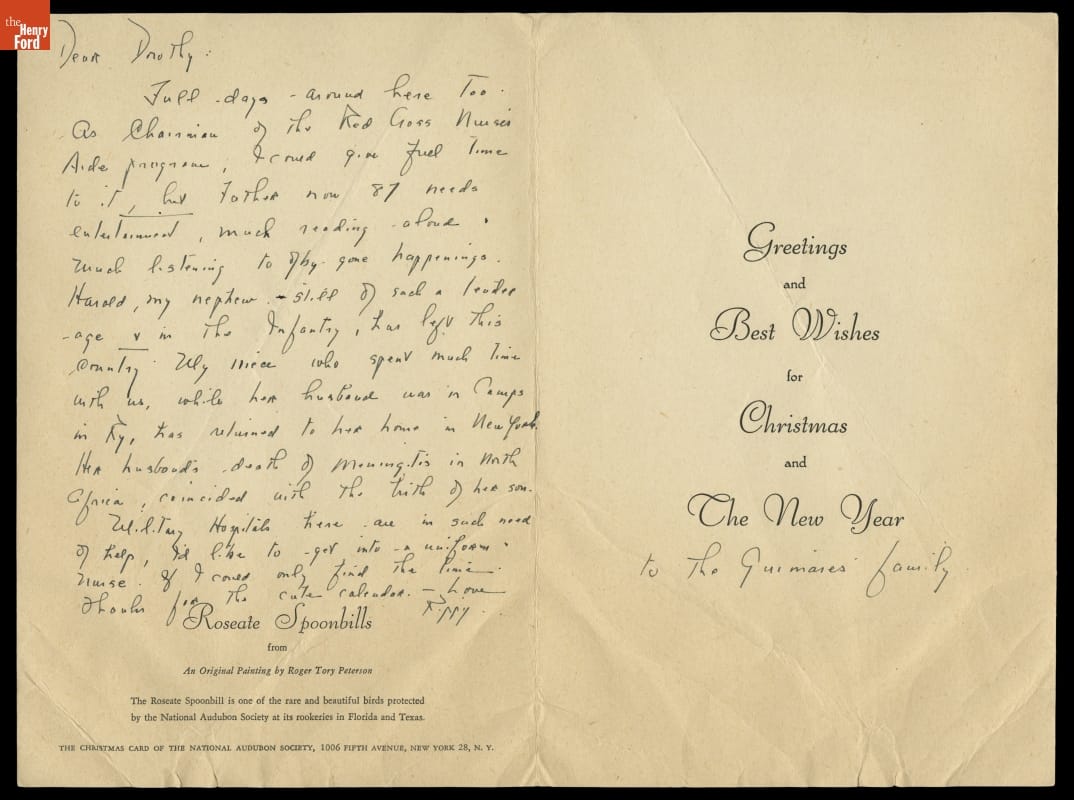 the
Henry
Ford
Dear Dorothy:
Full days around here too.
As Chairman of the Red Cross Nurses
Aide program, I could give full time
to it, but Father now 87 needs
entertainment, much reading aloud.
Much listening to by-gone happenings.
Harold, my nephew - still of such a tender
age & in the Infantry, has left this
country. My niece who spent much time
with us, while her husband was in Camps
in Ky, has returned to her home in New York.
Her husband's death of meningitis in North
Africa, coincided with the birth of her son.
Military Hospitals here are in such need
of help, I'd like to get into a uniform &
nurse. If I could only find the time.
Thanks for the cute calendar. - Love
Roseate Spoonbills
from
An Original Painting by Roger Tory Peterson
The Roseate Spoonbill is one of the rare and beautiful birds protected
by the National Audubon Society at its rookeries in Florida and Texas.
THE CHRISTMAS CARD OF THE NATIONAL AUDUBON SOCIETY, 1006 FIFTH AVENUE, NEW YORK 28, N. Y.
Greetings
and
Best Wishes
for
Christmas
and
The New Year
to the family